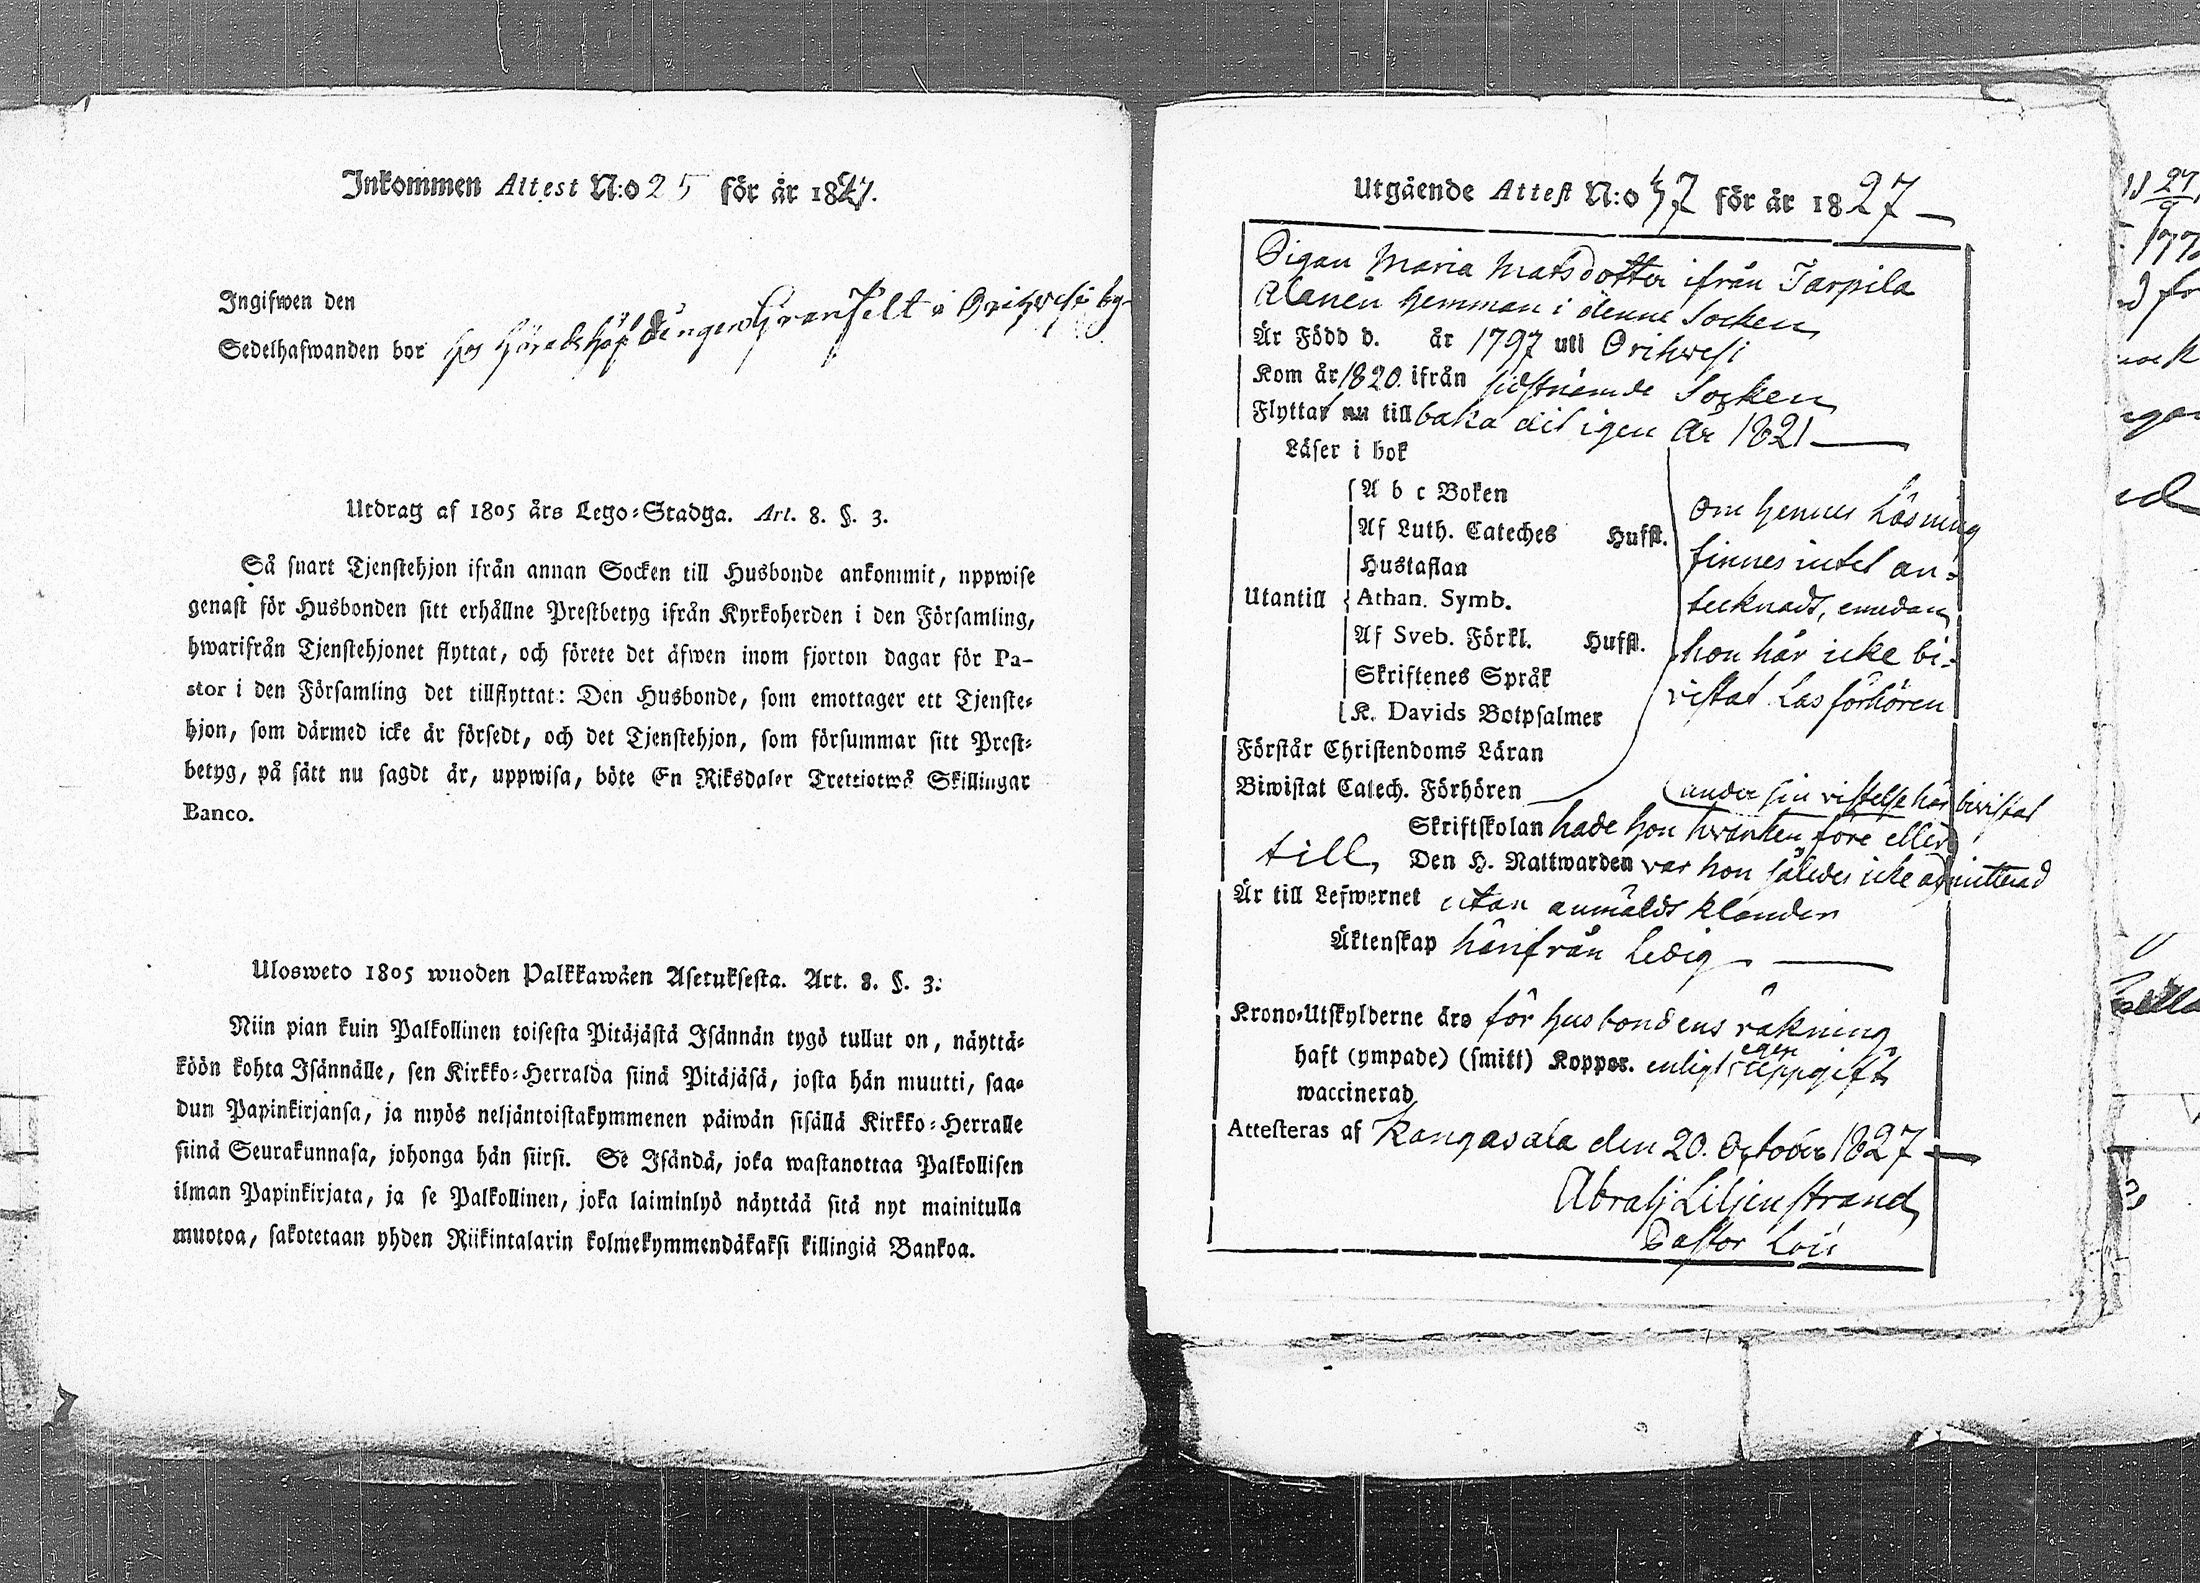 Inkommen Attest N:o 25 för år 1827.
Ingifwen den
Sedelhafwanden bor hos Häradshöfdingen Granfelt i Orihvesi by
Utdrag af 1805 års Lego-Stadga. Art. 8. §. 3.
Så snart Tjenstehjon ifrån annan Socken till Husbonde ankommit, uppwise
genast för Husbonden sitt erhållne Prestbetyg ifrån Kyrkoherden i den Församling,
hwarifrån Tjenstehjonet flyttat, och förete det äfwen inom fjorton dagar för Pa-
stor i den Församling det tillflyttat: Den Husbonde, som emottager ett Tjenste-
hjon, som därmed icke är försedt, och det Tjenstehjon, som försummar sitt Prest-
betyg, på sätt nu sagdt är, uppwisa, böte En Riksdaler Trettiotwå Skillingar
Banco.
Ulosweto 1805 wuoden Palkkawäen Asetuksesta. Art. 8. §. 3.
Niin pian kuin Palkollinen toisesta Pitäjästä Isännän tygö tullut on, näyttä-
köön kohta Isännälle, sen Kirkko-Herralda siinä Pitäjäsä, josta hän muutti, saa-
dun Papinkirjansa, ja myös neljäntoistakymmenen päiwän sisällä Kirkko-Herralle
siinä Seurakunnasa, johonga hän siirsi. Se Isändä, joka wastanottaa Palkollisen
ilman Papinkirjata, ja se Palkollinen, joka laiminlyö näyttää sitä nyt mainitulla
muotoa, sakotetaan yhden Riikintalarin kolmekymmendäkaksi killingiä Bankoa.
Utgående Attest N:o 57 för år 1827
Pigan Maria Matsdotter ifrån Tarpila
Alanen hemman i denne Socken
Är Född d. år 1797 uti Orihwesi
Kom år 1820. ifrån sidstnämde Socken
Flyttat nu till baka dit igen År 1821
Läser i bok
A b c Boken
Af Luth. Cateches Hufst.
Hustaflan
Utantill Athan. Symb.
Af Sveb. Förkl. Hufst.
Skriftenes Språk
K. Davids Botpsalmer
Om hennes Läsning
finnes intet an-
tecknadt, emedan
hon här icke bi-
vistat Läsförhören
Förstår Christendoms Läran
Biwistat Catech. Förhören
(under sin vistelse här bivistat
Skriftskolan hade hon hvarken före eller
till, Den H. Nattwarden var hon således icke admitterad
Är till Lefwernet utan anmäldt klander
Äktenskap härifrån ledig
Krono-Utskylderne äro för husbondens räkning
haft (ympade) (smitt) Koppor. enligt egen uppgift
waccinerad
Attesteras af Kangasala den 20. October 1827
Abrah: Liljenstrand
Pastor Loci